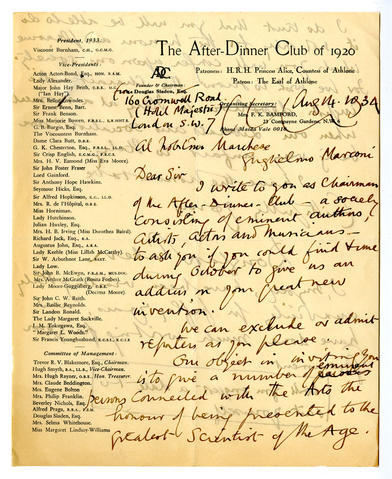 President, 1933
Viscount Burnham, C.H., G.C.M.G.
Vice-Presidents:
Acton Acton-Bond, Esq., HON. F.S.M.
Lady Alexander.
Major John Hay Beith, C.B.E., M.C.
("Ian Hay")
Mrs. Belloc Lowndes.
Sir Ernest Benn, Bart.
Sir Frank Benson.
Miss Marjorie Bowen,
G. B. Burgin, Esq.
The Viscountess Burnham.
Dame Clara Butt,
G. K. Chesterton, Esq.,
Sir Crisp English,
Mrs. H. V. Esmond (Miss Eva Moore).
Sir John Foster Fraser
Lord Gainford.
Sir Anthony Hope Hawkins.
Seymour Hicks, Esq.
Sir Alfred Hopkinson,
Mrs. R. de l'Hôpital, O.B.E.
Miss Horniman.
Lady Hutchinson.
Julian Huxley, Esq.
Mrs. H. B. Irving (Miss Dorothea Baird).
Richard Jack, Esq., R.A.
Augustus John, Esq.,
Lady Keeble (Miss Lillah McCarthy).
Sir W. Arbuthnot Lane,
Lady Low.
Sir John B. McEwen,
Mrs. Arthur McGrath (Rosita Forbes).
Lady Moore-Guggisberg,
(Decima Moore)
Sir John C. W. Reith.
Mrs. Baillie Reynolds.
Sir Landon Ronald.
The Lady Margaret Sackville.
I. M. Tokugawa, Esq.
"Margaret L. Woods."
Sir Francis Younghusband, K.C.S.I., K.C.I.E
Committee of Management:
Trevor R. V. Blakemore, Esq., Chairman.
Hugh Smyth, Vice-Chairman.
Mrs. Hugh Rayner, O.B.E., Hon. Treasurer.
Mrs. Claude Beddington.
Mrs. Eugene Bolton
Mrs. Philip Franklin.
Beverley Nichols, Esq.
Alfred Praga,
Douglas Sladen, Esq.
Mrs. Selma Whitehouse.
Miss Margaret Lindsay-Williams
The After-Dinner Club of 1920
Patroness: H.R.H. Princess Alice, Countess of Athlone
Patron: The Earl of Athlone
ADC
Founder and Chairman
Douglas Sladen, Esq.
160 Cromwell Road
(Hotel Majestic)
London S.W. 7
Organising Secretary:
Mrs. F. K. BAMFORD,
28 Compayne Gardens, N.W.6
Phone Maida Vale
Aug 14. 1934
Al Nobilmo Marchese
Guglielmo Marconi
Dear Sir
I write to you as Chairman
of the After-Dinner-Club – a society
consisting of eminent authors,
artists, actors and musicians –
to ask you if you could find time
during October to give us an
address on your great new
invention.
We can exclude or admit
reporters as you please.
Our object in inviting you
is to give a number of eminent
persons connected with the Arts the
honour of being presented to the
greatest Scientist of the Age.